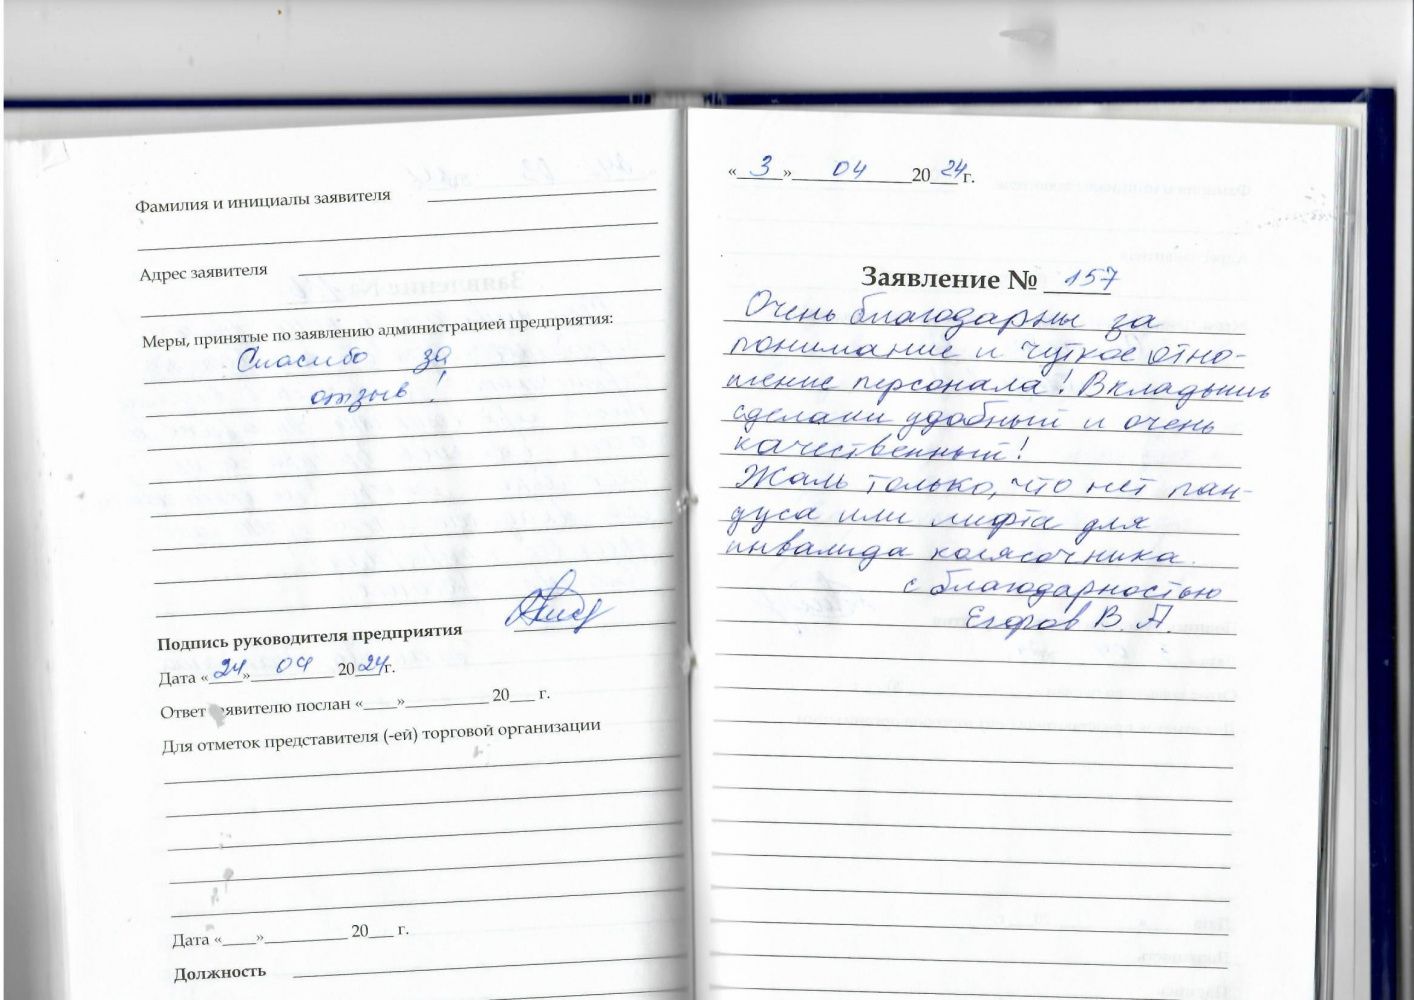 Фамилия и инициалы заявителя
Адрес заявителя
Меры, принятые по заявлению администрацией предприятия:
Спасибо за
отзыв!
Подпись руководителя предприятия
Дата «24» 04 2024г.
Ответ заявителю послан «____»__________ 20___ г.
Для отметок представителя (-ей) торговой организации
Дата «____»__________ 20___ г.
Должность
«3» 04 2024г.
Заявление № 157
Очень благодарны за
понимание и чуткое отно-
шение персонала! Вкладыш
сделали удобный и очень
качественный!
Жаль только, что нет пан-
дуса или лифта для
инвалида колясочника.
с благодарностью
Егоров В. П.